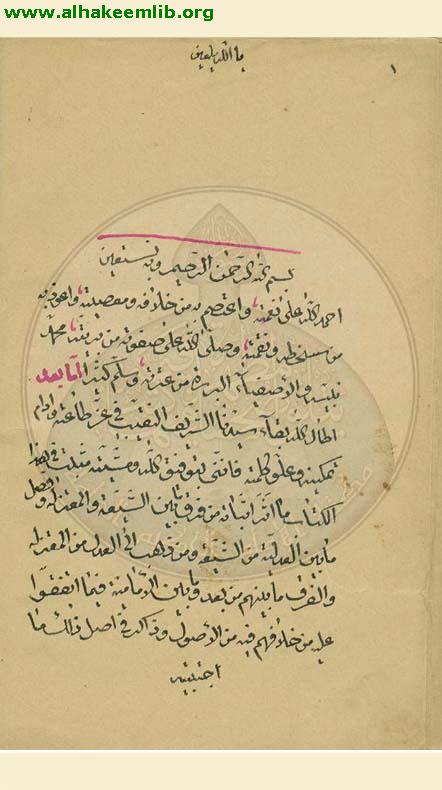 www.alhakeemlib.org
يا الله يا معين
١
بسم الله الرحمن الرحيم وبه نستعين
احمد الله على نعمته واعتصم به من خلافه ومعصيته واعوذ به
من سخطه ونقمته وصلى الله على صفوته من بريته محمد
نبيه والأصفياء البررة من عترته وسلم كثيرا اما بعد
اطال الله بقاء سيدنا الشريف النقيب في عز طاعته وادام
تمكينه وعلو كلمته فانني بتوفيق الله ومشيته مثبت في هذا
الكتاب ما اثر اثباته من فرق بين الشيعة والمعتزله وفصل
ما بين العدلية من الشيعة ومن ذهب الى العدل من المعتزله
والفرق ما بينهم من بعد وما بين الامامية فيما اتفقوا
عليه من خلافهم فيه من الأصول وذاكر في اصل ذلك ما
اجتبيته